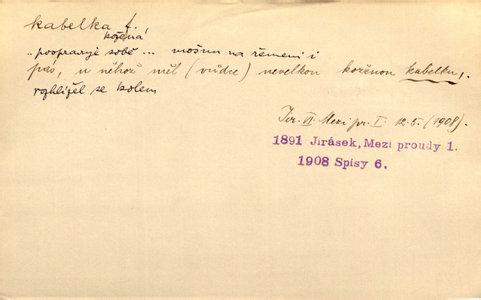 kabelka f.
kožená
„poopravuje sobě ... mošnu na řemeni i
pás, u něhož měl (vůdce) nevelkou koženou kabelku,
rozhlížel se kolem
Jir. II. Mezi pr. I. 12.5. (1908).
1891 Jirásek, Mezi proudy 1.
1908 Spisy 6.